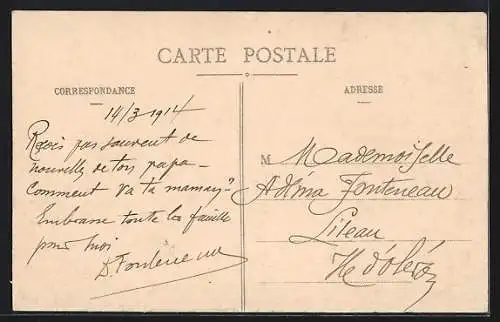 CARTE POSTALE
CORRESPONDANCE
ADRESSE
14/3 1914
Reçois pas souvent de
nouvelle de ton papa –
Comment va ta maman?
Embrasse toute la famille
pour moi
D. Fonteneau
M Mademoiselle
Adlina Fonteneau
Lileau
H d'oléron